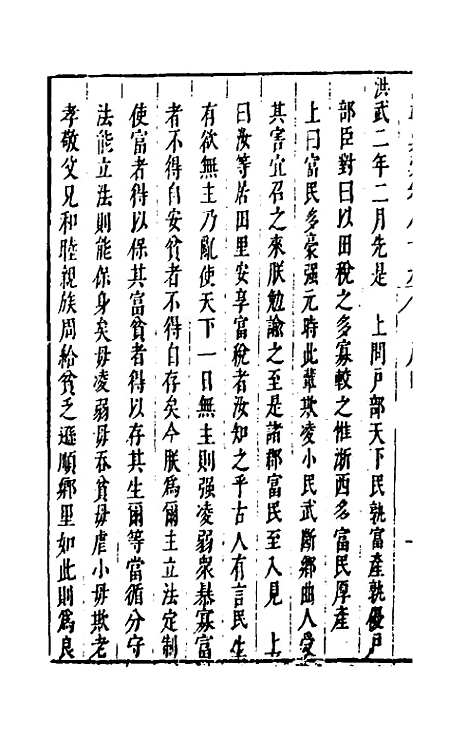 洪武二年二月先是　上問戶部天下民孰富產孰優戶
部臣對曰以田稅之多寡較之惟浙西多富民厚產
上曰富民多豪强元時此輩欺凌小民武斷鄉曲人受
其害宜召之來朕勉諭之至是諸郡富民至入見　上
曰汝等居田里安享富稅者汝知之乎古人有言民生
有欲無主乃亂使天下一日無主則强凌弱衆暴寡富
者不得自安貧者不得自存矣今朕爲爾主立法定制
使富者得以保其富貧者得以存其生爾等當循分守
法能立法則能保身矣毋凌弱毋吞貧毋虐小毋欺老
孝敬父兄和睦親族周給貧乏遜順鄉里如此則爲良